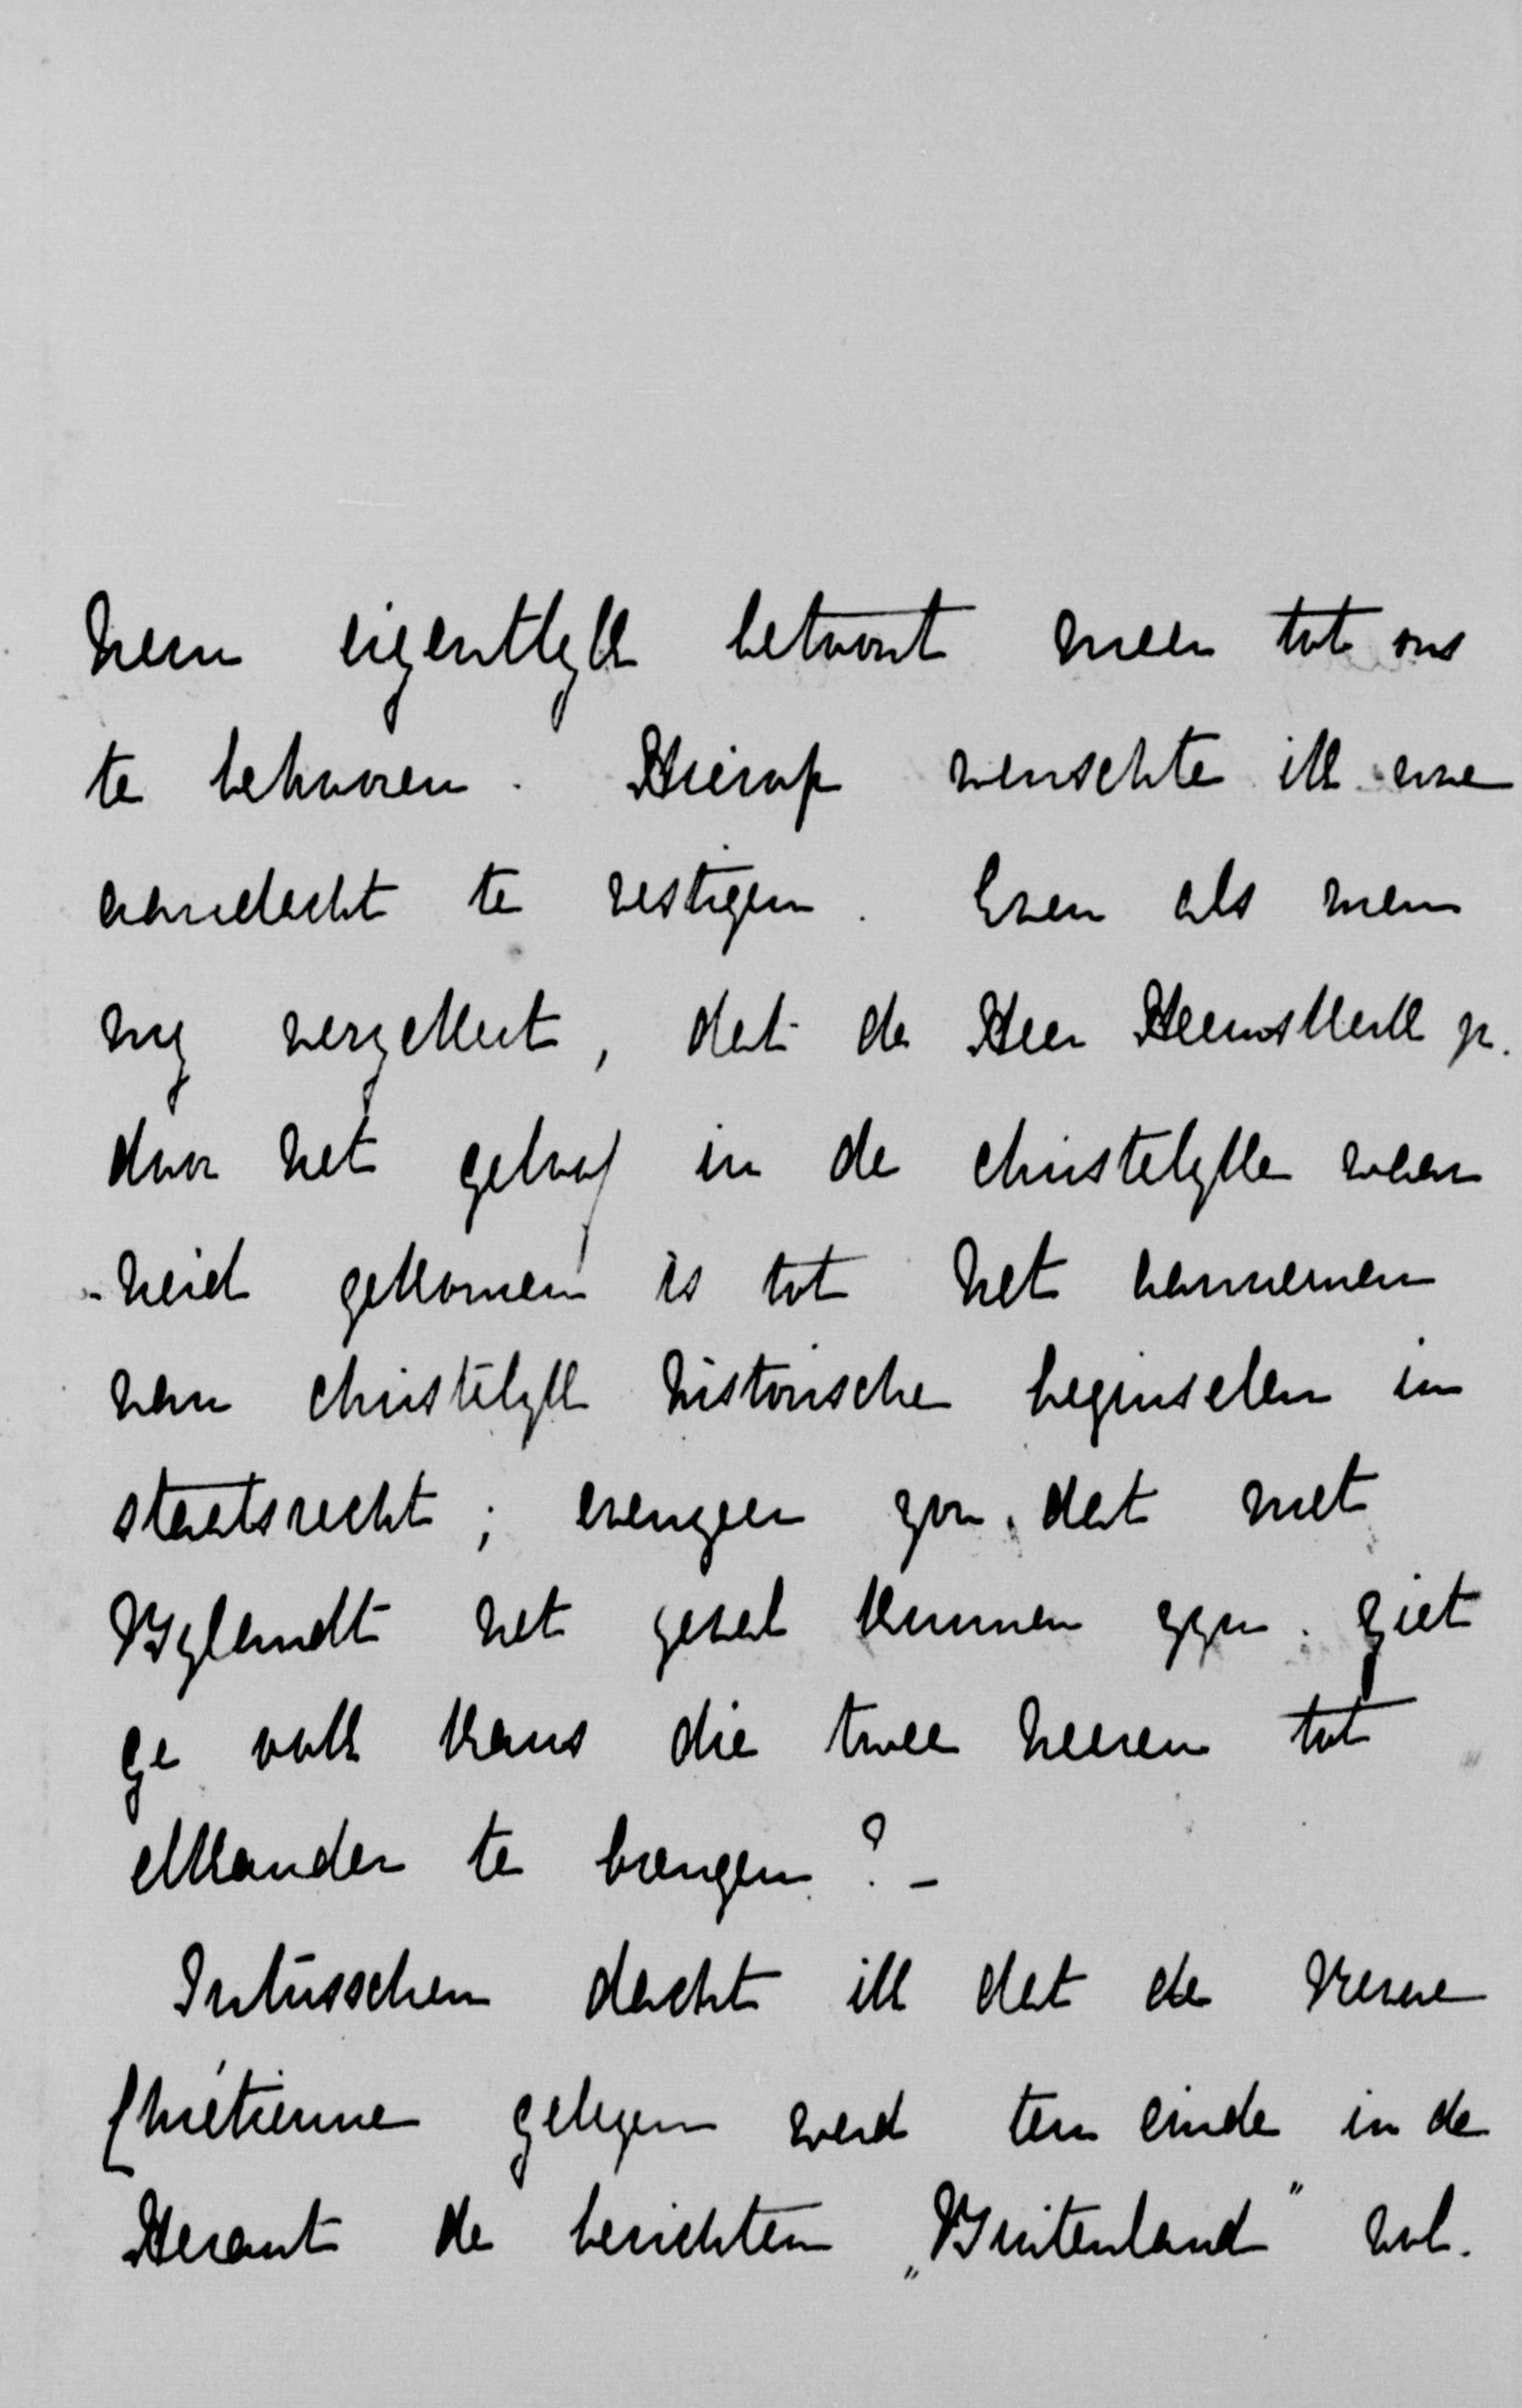 hem eigentlijk betoont meer tot ons
te behooren. Hierop wenschte ik uwe
aandacht te vestigen. Even als men
my verzekert, dat de Heer Heemskerk jr.
door het geloof in de christelyke waar
-heid gekomen is tot het aannemen
van christelyk historische beginselen in
staatsrecht; evenzeer zou dat met
Bylandt het geval kunnen zyn. Ziet
ge ook kans die twee heeren tot
elkander te brengen? -
Intusschen dacht ik dat de Revue
Chrétienne gelezen werd ten einde in de
Heraut de berichten „Buitenland" vol.